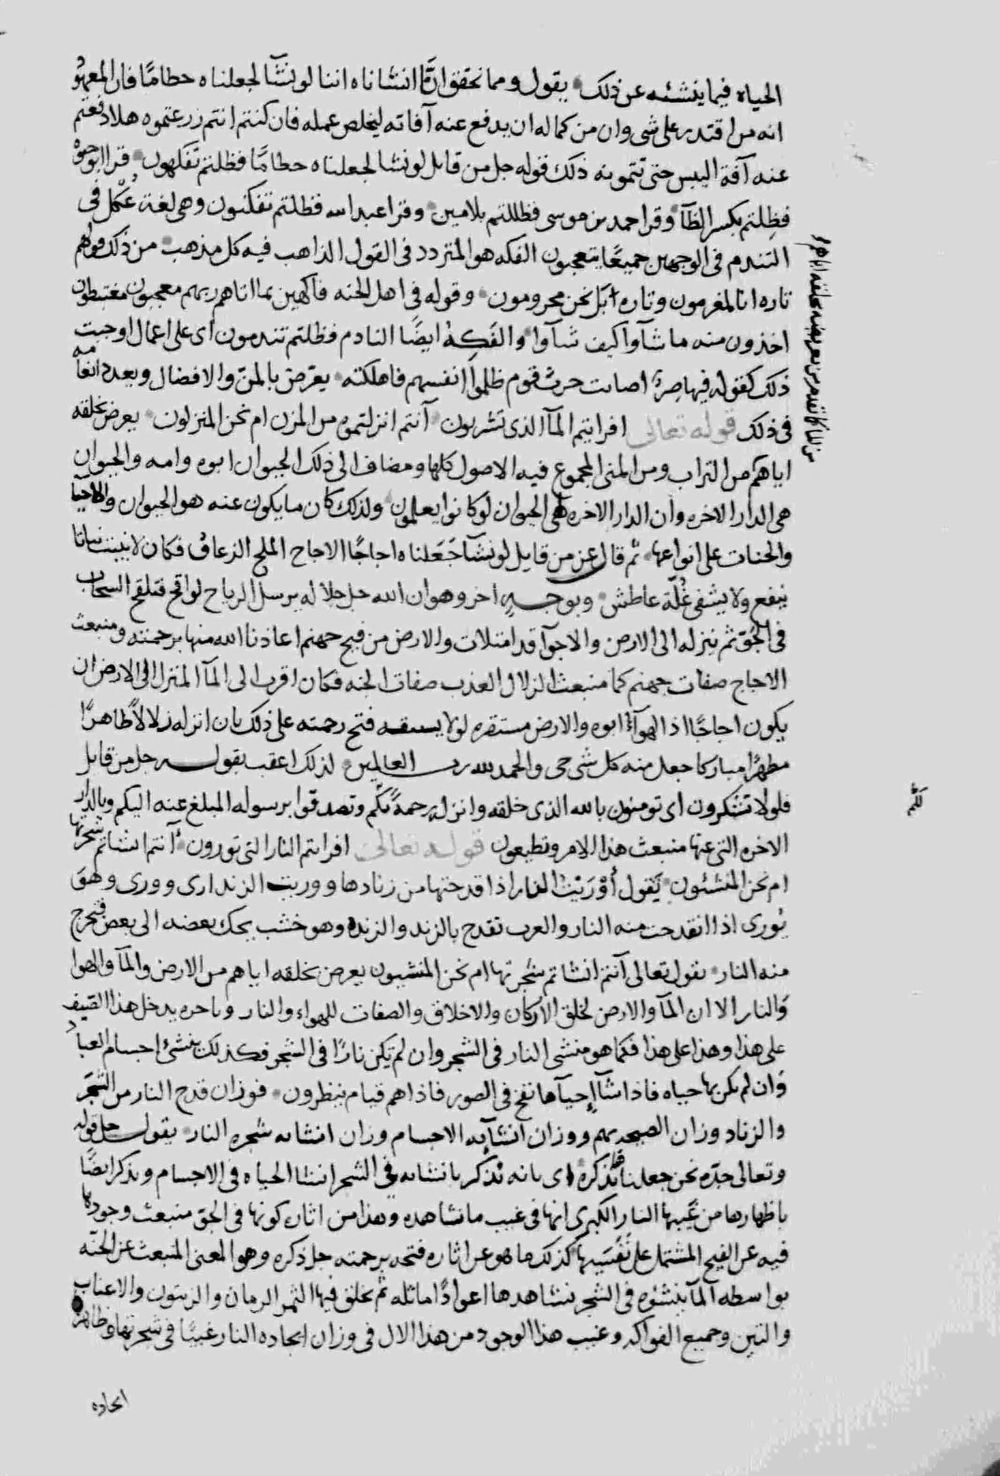 الحياه فيما ينشئه عن ذلك يقول ومما تحققوا انا انشاناه اننا لو نشآ لجعلناه حطامًا فان المعهود
انه من اقتدر على شي وان من كماله ان يدفع عنه آفاته ليخلص عمله فان كنتم انتم زرعتموه هلا دفعتم
عنه آفة اليبس حتى تتمونه ذلك قوله جل من قايل لو نشا لجعلناه حطامًا فظلتم تفكهون قرا ابو حيوة
فظلتم بكسر الظآ وقرا احمد بن موسى فظللتم بلامين وقرا عبد الله فظلتم تفكنون وهي لغة عكل في
التندم في الوجهين جميعًا يتعجبون الفكه هو المتردد في القول الذاهب فيه كل مذهب من ذلك قولهم
تاره انا لمغرمون وتاره بل نحن محرومون وقوله في اهل الجنه فاكهين بما اتاهم ربهم معجبون مغتبطون
اخذون منه ما شآوا كيف شآوا والفكه ايضًا النادم فظلتم تندمون اي على اعمال اوجبت
ذلك كقوله فيها صر اصابت حرث قوم ظلموا انفسهم فاهلكته يعرض بالمن والافضال وبعد انعامه
في ذلك قوله تعالى افرايتم المآ الذي تشربون آنتم انزلتموه من المزن ام نحن المنزلون يعرض بخلقه
اياهم من التراب ومن المنى المجموع فيه الاصول كلها ومضاف الى ذلك الحيوان ابوه وامه والحيوان
هي الدار الاخره وان الدار الاخره لهي الحيوان لو كانوا يعلمون ولذلك كان ما يكون عنه هو الحيوان والاحيا
والجنات على انواعها ثم قال عز من قايل لو نشآ جعلناه اجاجًا الاجاج الملح الزعاف فكان لا ينبت نباتا
ينفع ولا يشفي غلة عاطش وبوجه اخر وهو ان الله جل جلاله يرسل الرياح لواقح فتلقح السحاب
في الجو ثم ينزله الى الارض والاجوآ قد امتلات والارض من فيح جهنم اعاذنا الله منها برحمته ومنبعث
الاجاج صفات جهنم كما منبعث الزلال العذب صفات الجنه فكان اقرب الى المآ المنزل الى الارض ان
يكون اجاجًا اذ الهوآ ابوه والارض مستقره لولا يسبقه فتح رحمته على ذلك بان انزله زلالًا طاهرًا
مطهرًا مباركا جعل منه كل شي حي والحمد لله رب العالمين لذلك اعقب بقوله جل من قايل
فلولا تشكرون اي تومنون بالله الذي خلقه وانزله رحمةً بكم وتصدقوا برسوله المبلغ عنه اليكم وبالدار
الاخره التي عنها منبعث هذا الامر وتطيعون قوله تعالى افرايتم النار التي تورون آنتم انشاتم شجرتها
ام نحن المنشئون يقول أورَيْت النار اذا قدحتها من زنادها ووريت الزند اري ووري وهو
يوري اذا انقدحت منه النار والعرب تقدح بالزند والزنده وهو خشب يحك بعضه الى بعض فتخرج
منه النار يقول تعالى آنتم انشاتم شجرتها ام نحن المنشيون يعرض بخلقه اياهم من الارض والمآ والهوا
والنار الا ان المآ والارض لخلق الاركان والاخلاق والصفات للهواء والنار وباخره يدخل هذا القبيف
على هذا وهذا على هذا فكما هو منشى النار في الشجر وان لم تكن نارًا في الشجر فكذلك ينشئ اجسام العباد
وان لم تكن بها حياه فاذا شآ إحيآها نفخ في الصور فاذا هم قيام ينظرون فوزان قدح النار من الشجر
والزناد وزان الصيحه بهم ووزان انشآيه الاجسام وزان انشائه شجره النار يقول جل قوله
وتعالى جده نحن جعلناها تذكرة اي بانه يذكر بانشائه في الشجر انشا الحياه في الاجسام ويذكر ايضًا
باظهارها من غيبها النار الكبرى انها في غيب ما نشاهده وهذا من اثاره كونها في الجو منبعث وجودها
فيه عن الفيح المشتمل على نفسيها كذلك ما هو عن اثاره فتحه برحمته جل ذكره وهو المعنى المنبعث عن الجنه
بواسطه المآ ينشئوه في الشجر نشاهدها اعوادًا ماثله ثم يخلق فيها الثمر الرمان والزيتون والاعناب
والتين وجميع الفواكه وغيب هذا الوجود من هذا الال في وزان ايجاده النار غيبًا في شجرتها وظاهرة
ايجاده